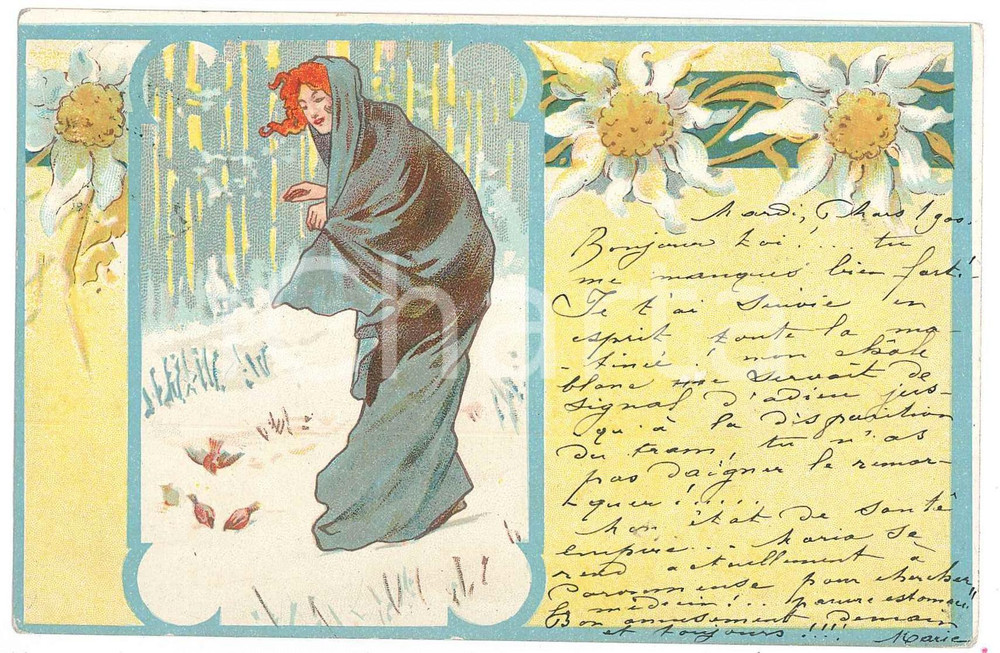 Mardi, 7 Mars 1900.
Bonjour toi!... tu
me manques bien fort!
Je t'ai suivie en
esprit toute la ma-
-tinée! mon châle
blanc me servait de
signal d'adieu jus-
qu'à la disparition
du tram, tu n'as
pas daigner le remar-
quer!.....
Mon état de santé
empire... Maria se
rend actuellement à
pour chercher
le médecin!...
Bon amusement demain
et toujours!!!! Marie
Charta